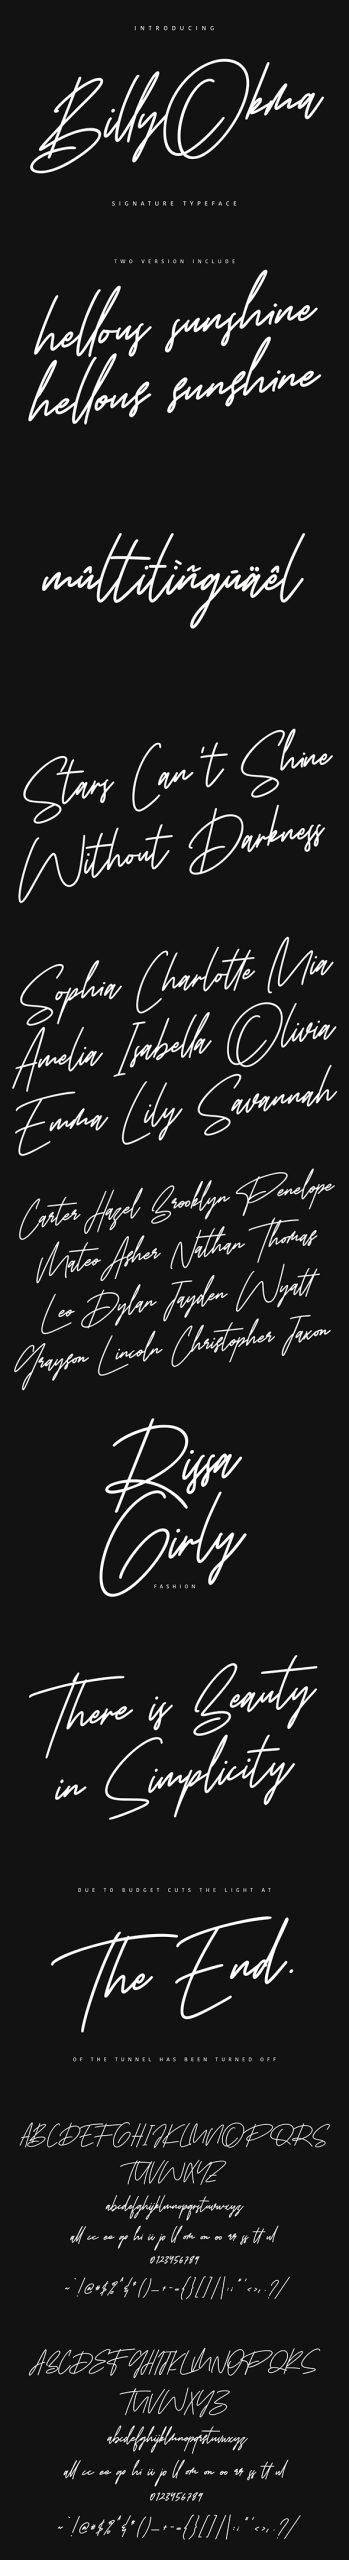 INTRODUCING
Billy Okma
SIGNATURE TYPEFACE
TWO VERSION INCLUDE
hellous sunshine
hellous sunshine
mûltitìñgūäêl
Stars Can't Shine
Without Darkness
Sophia Charlotte Mia
Amelia Isabella Olivia
Emma Lily Savannah
Carter Hazel Brooklyn Penelope
Mateo Asher Nathan Thomas
Leo Dylan Jayden Wyatt
Grayson Lincoln Christopher Jaxon
Rissa
Girly
FASHION
There is Beauty
in Simplicity
DUE TO BUDGET CUTS THE LIGHT AT
The End.
OF THE TUNNEL HAS BEEN TURNED OFF
ABCDEFGHIJKLMNOPQRS
TUVWXYZ
abcdefghijklmnopqrstuvwxyz
all cc ee gp hi ii jp ll om on oo rr ss tt ul
0123456789
~`!@#$%^&*()_+-={}[]|\:;"'<>,.?/
ABCDEFGHIJKLMNOPQRS
TUVWXYZ
abcdefghijklmnopqrstuvwxyz
all cc ee gp hi ii jp ll om on oo rr ss tt ul
0123456789
~`!@#$%^&*()_+-={}[]|\:;"'<>,.?/